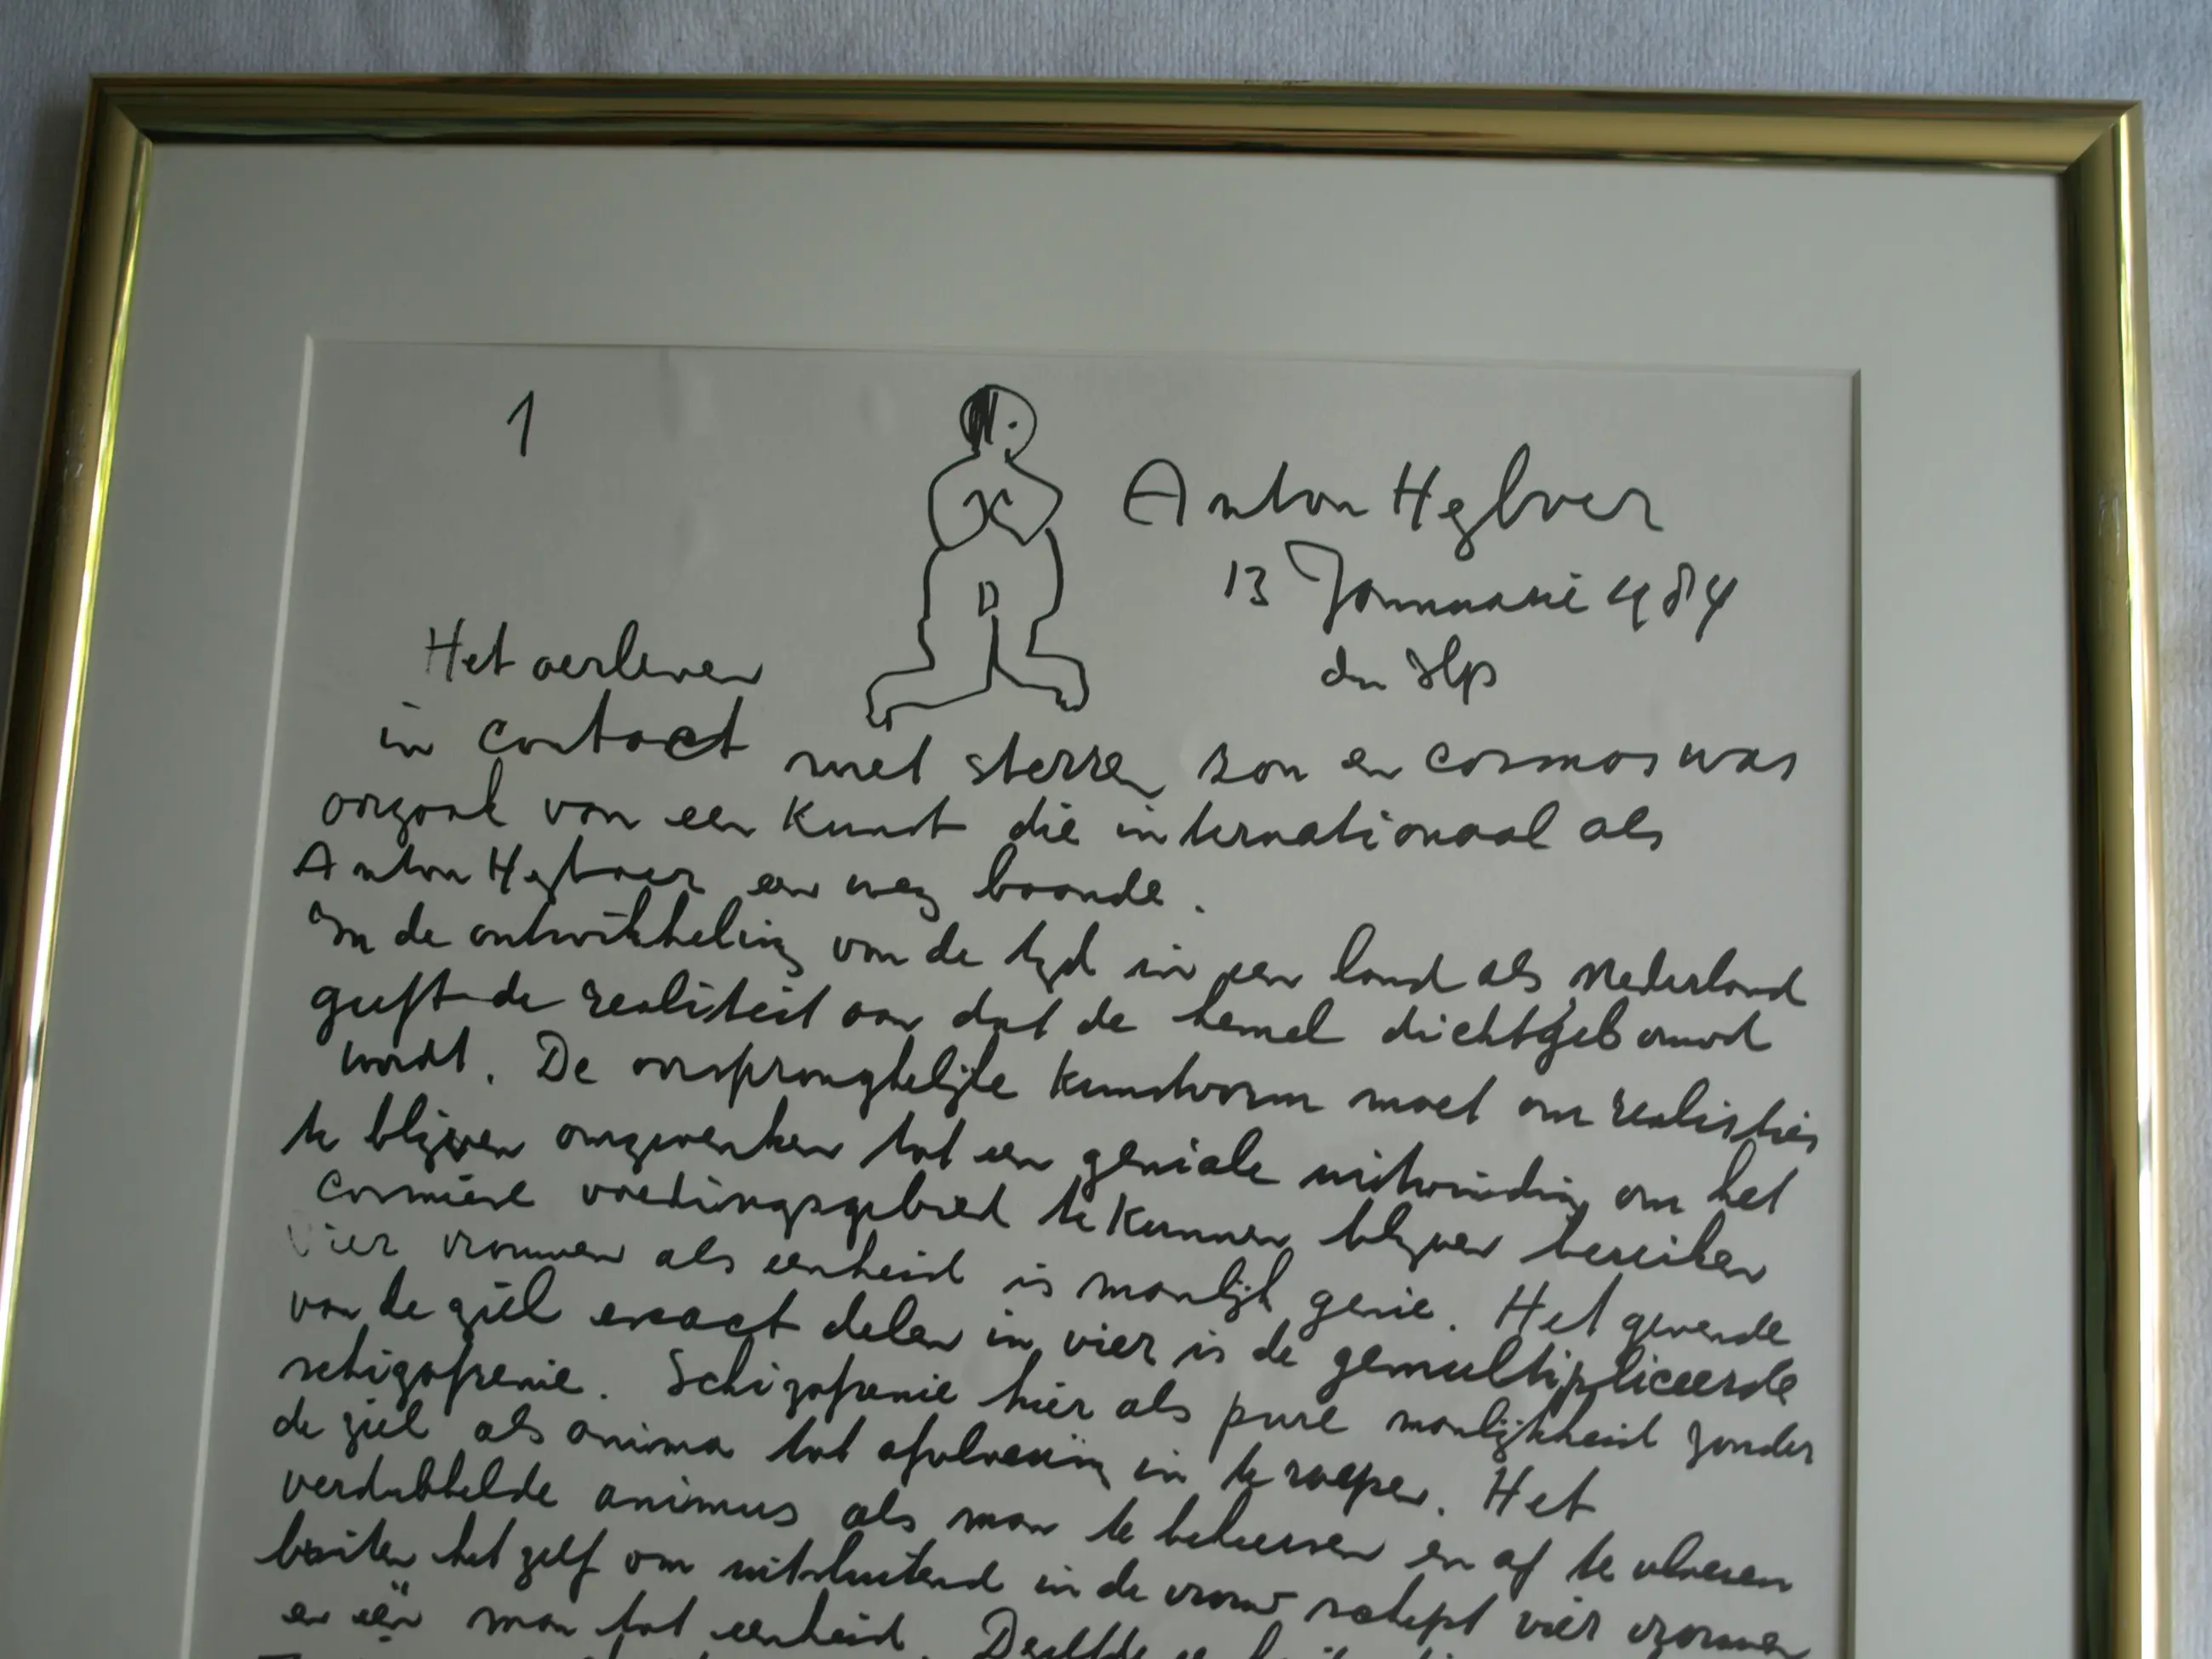 1
Anton Heyboer
13 Januarie 1984
den Ilp
Het oerleven
in contact met sterren zon en cosmos was
oorzaak van een kunst die internationaal als
Anton Heyboer een weg baande.
In de ontwikkeling van de tijd in een land als Nederland
geeft de realiteit aan dat de hemel dichtgebouwd
wordt. De oorspronghelijke kunstvorm moet om realisties
te blijven omgewerken tot een geniale uitvinding om het
cosmiese voedingsgebied te kunnen blijven bereiken
Vier vrouwen als eenheid is manlijk genie. Het gevende
van de ziel exact delen in vier is de gemultipliceerde
schizofrenie. Schizofrenie hier als pure manlijkheid zonder
de ziel als anima tot afvloeiing in te roepen. Het
verdubbelde animus als man te beheersen en af te vloeien
buiten het zelf om uitsluitend in de vrouw schept vier vrouwen
en één man tot eenheid. Dezelfde